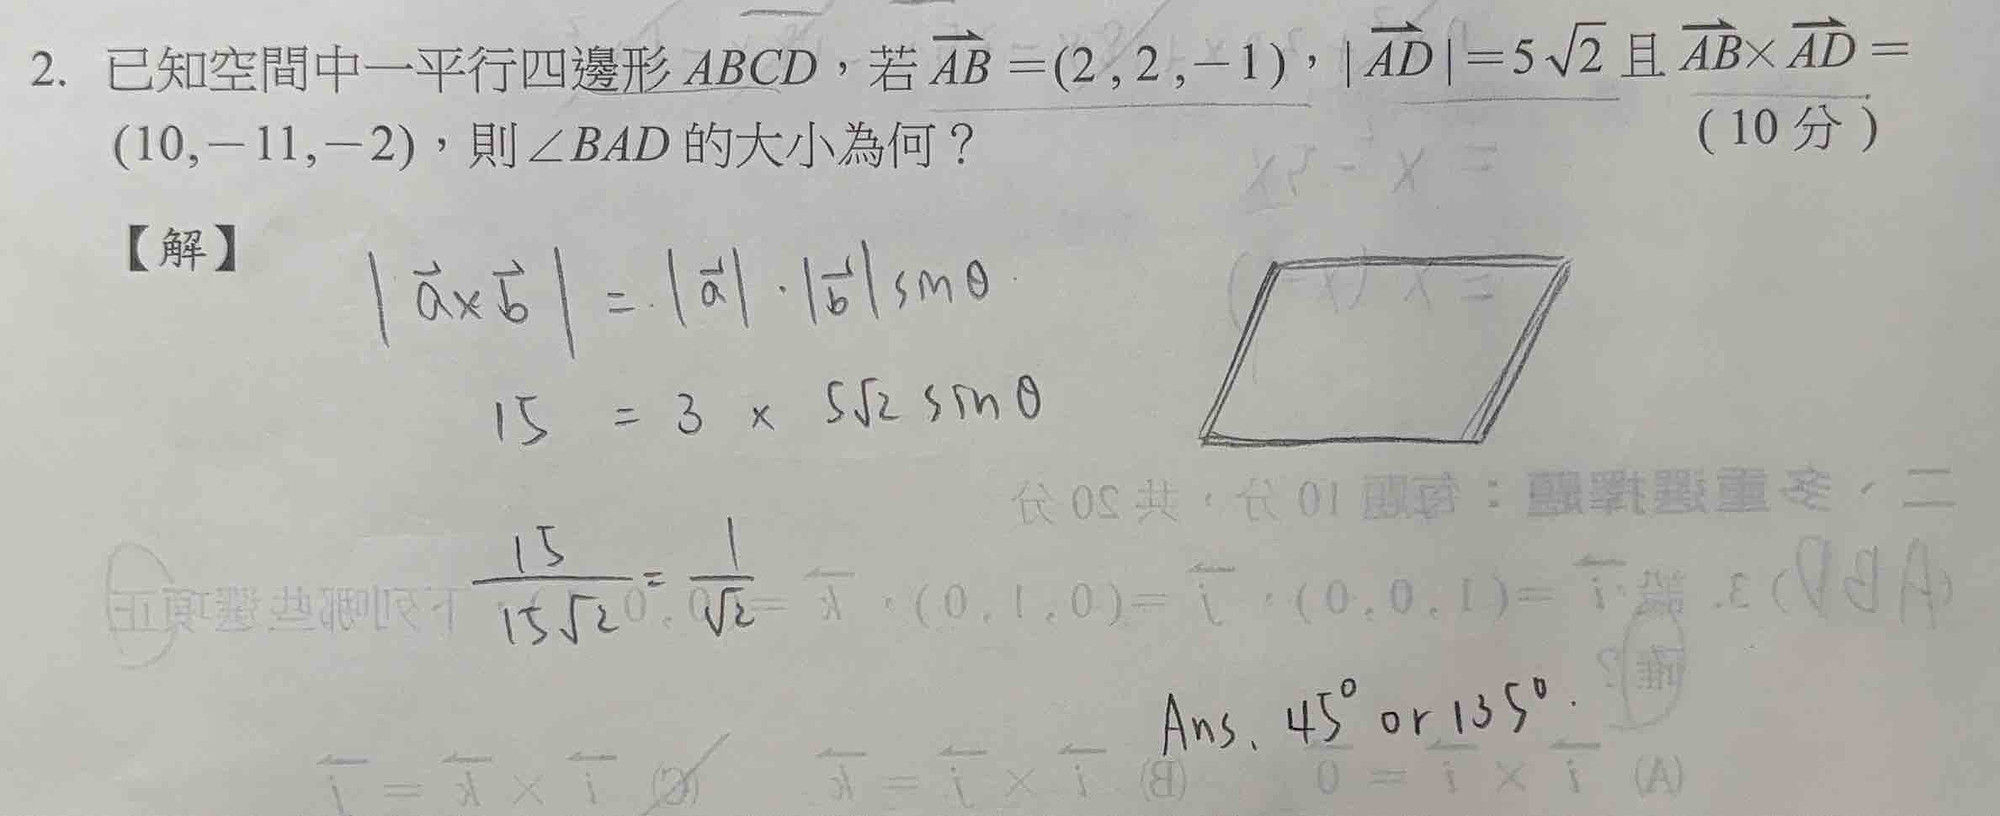 2. 已知空間中一平行四邊形 ABCD，若 $\overrightarrow{AB}$ =(2,2,−1)，|$\overrightarrow{AD}$|=5√2 且 $\overrightarrow{AB}$×$\overrightarrow{AD}$=
(10,−11,−2)，則∠BAD 的大小為何？ (10 分)
【解】
|$\vec{a}$×$\vec{b}$| = |$\vec{a}$|·|$\vec{b}$| sinθ
15 = 3 × 5√2 sinθ
$\frac{15}{15√2}$ = $\frac{1}{√2}$
Ans. 45° or 135°.